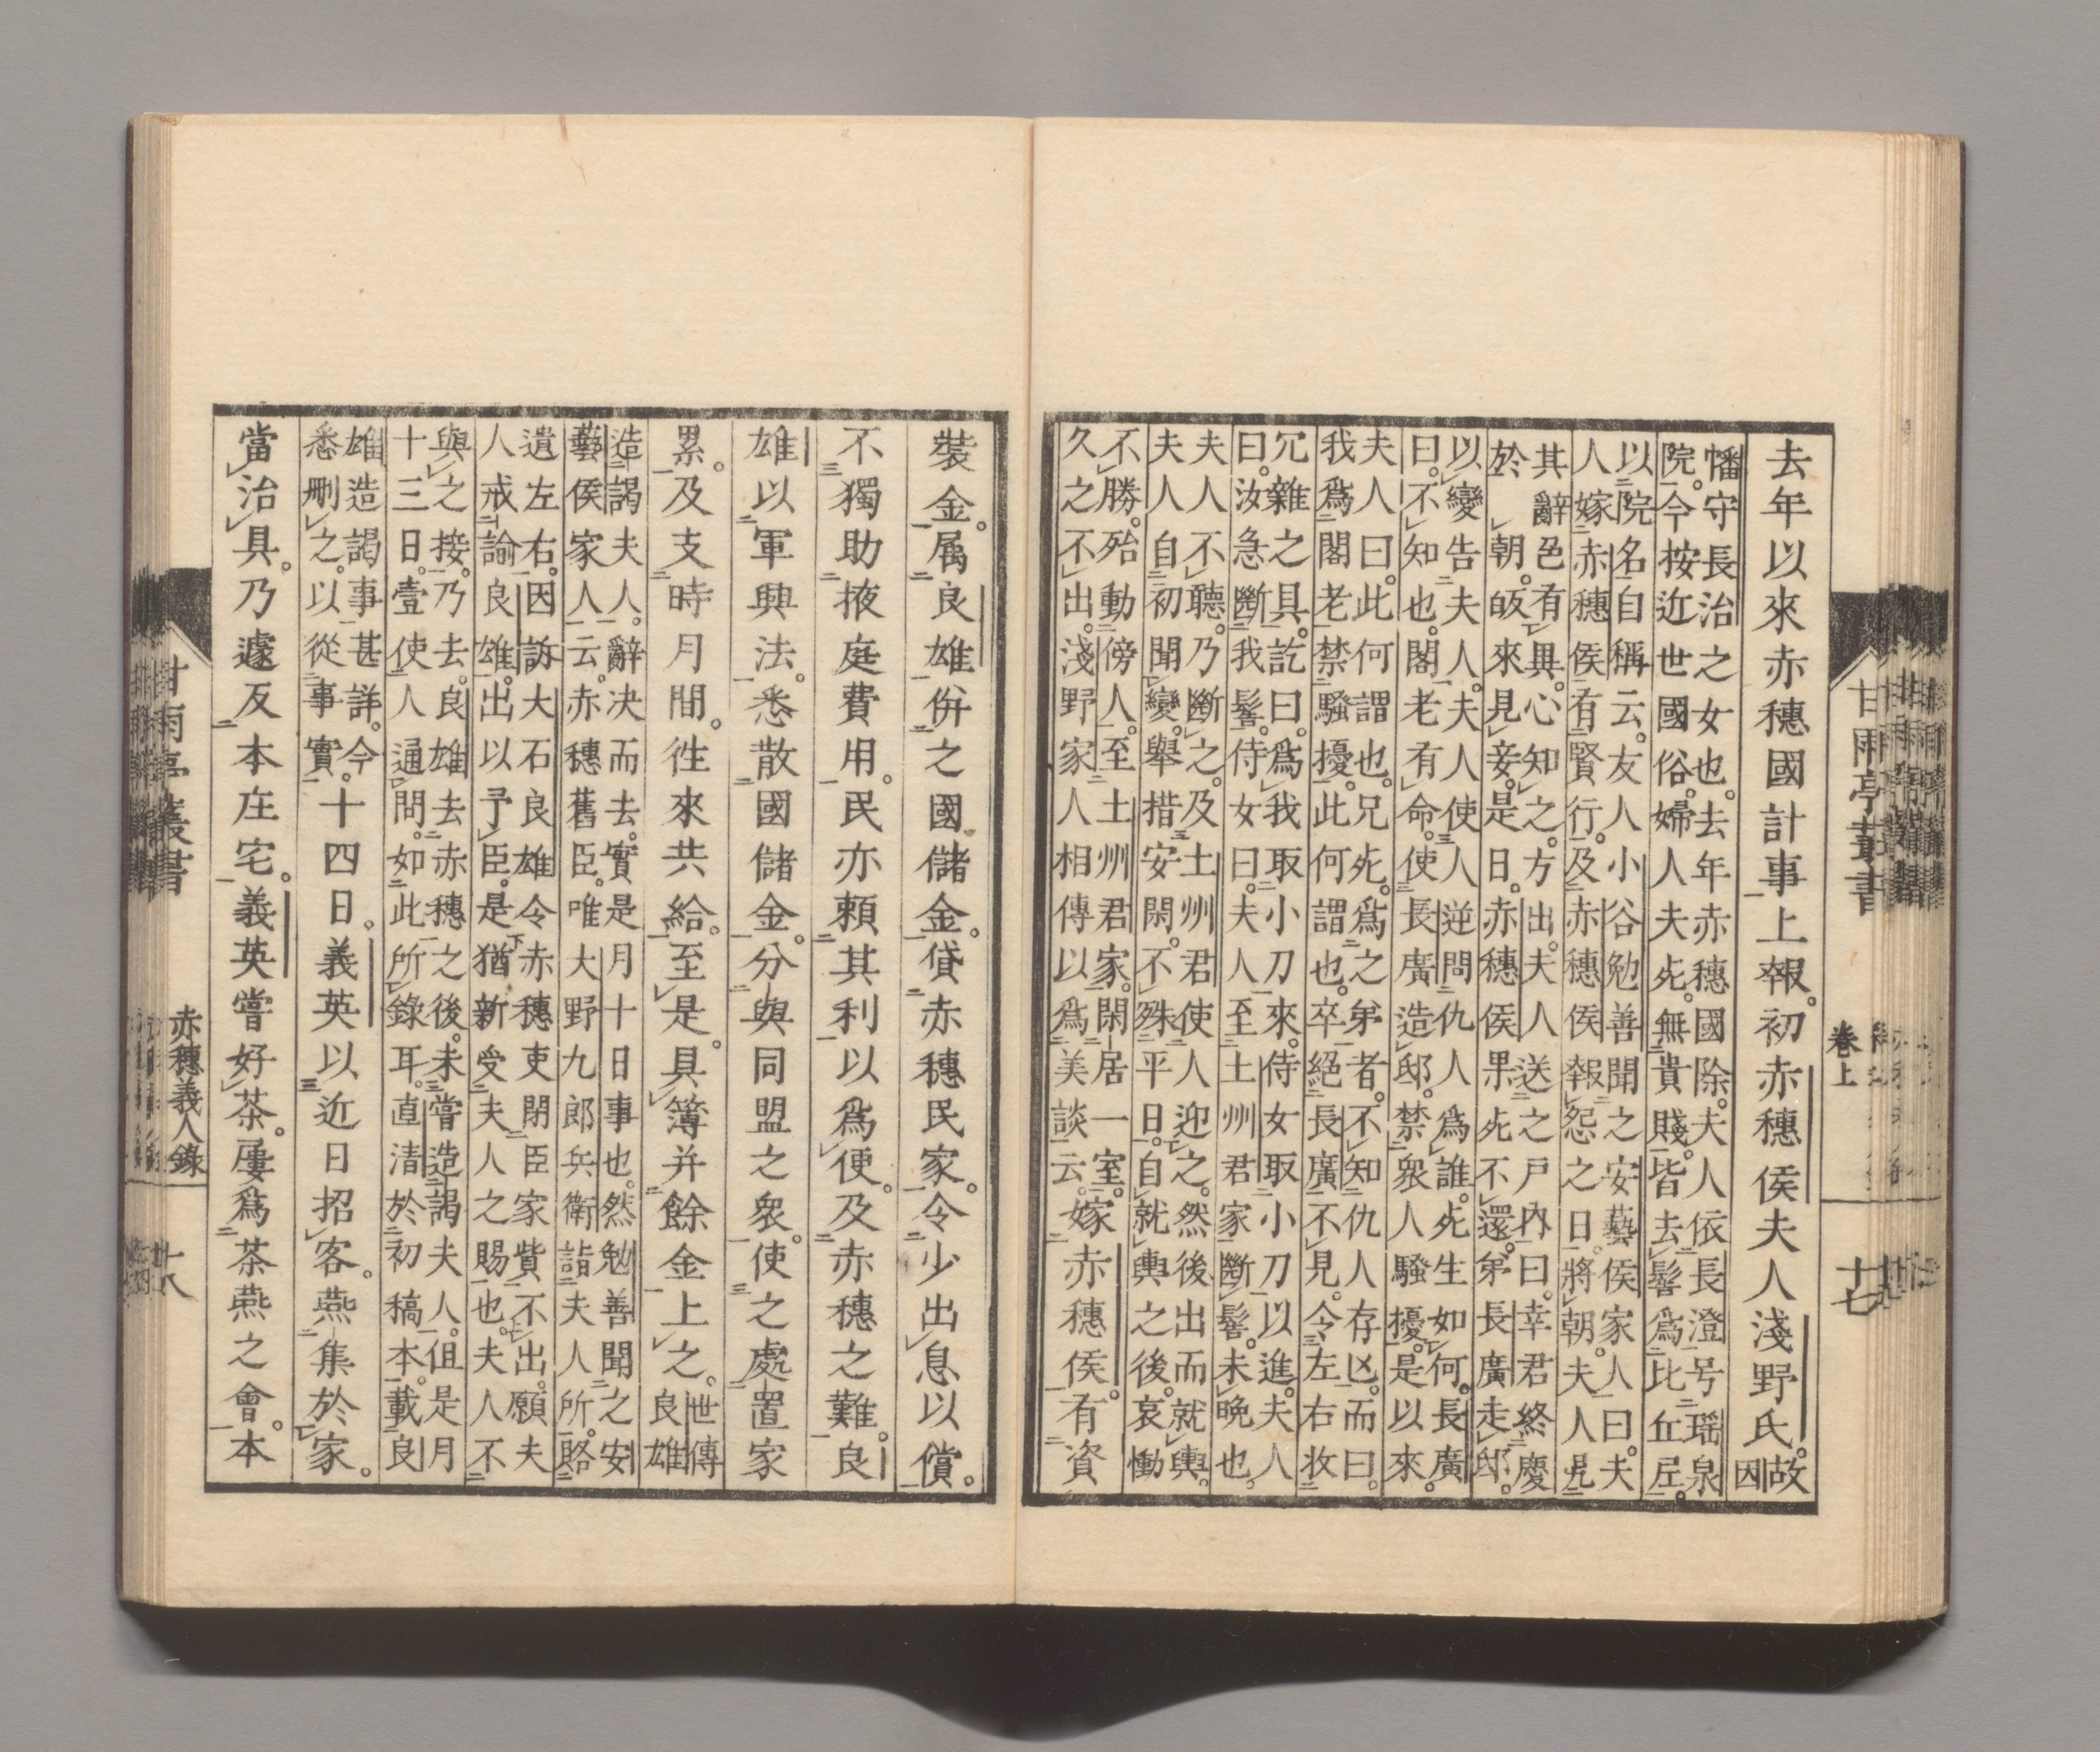 去年以來赤穗國計事上報。初赤穗侯夫人淺野氏。故
因
幡守長治之女也。去年赤穗國除。夫人依長澄号瑶泉
院。今按近世國俗。婦人夫死。無貴賤。皆去髻爲比丘尼。
以院名自稱云。友人小谷勉善聞之安藝侯家人曰。夫
人嫁赤穗侯有賢行。及赤穗侯報怨之日。將朝。夫人見
其辭色有異。心知之。方出。夫人送之戸内曰。幸君終慶
於朝。皈來見妾。是日。赤穗侯果死不還。弟長廣走邸。
以變告夫人。夫人使人逆問仇人爲誰。死生如何。長廣
曰。不知也。閣老有命。使長廣造邸。禁衆人騷擾。是以來。
夫人曰。此何謂也。兄死。爲之弟者。不知仇人存亡。而曰。
我爲閣老禁騷擾。此何謂也。卒絕長廣不見。令左右收
冗雜之具。訖曰。爲我取小刀來。侍女取小刀以進。夫人
曰。汝急斷我髻。侍女曰。夫人至土州君家斷髻。未晚也。
夫人不聽。乃斷之。及土州君使人迎之。然後出而就輿。
夫人自初聞變。舉措安閑。不殊平日。自就輿之後。哀慟
不勝。殆動傍人。至土州君家。閑居一室。
久之不出。淺野家人相傳以爲美談云。
嫁赤穗侯有資
甘雨亭叢書
卷上
十七
裝金。属良雄併之國儲金。貸赤穗民家。令少出息以償。
不獨助掖庭費用。民亦賴其利以爲便。及赤穗之難。良
雄以軍興法。悉散國儲金。分與同盟之衆。使之處置家
累。及支時月間。徃來共給。至是。具簿并餘金上之。世傳
良雄
造謁夫人。辭决而去。實是月十日事也。然勉善聞之安
藝侯家人云。赤穗舊臣。唯大野九郎兵衛詣夫人所賂
遺左右。因訴大石良雄令赤穗吏閉臣家貲不出。願夫
人戒諭良雄出以予臣。是猶新受夫人之賜也。夫人不
與之接。乃去。良雄去赤穗之後。未嘗造謁夫人。但是月
十三日。壹使人通問。如此所錄耳。直清於初稿本。載良
雄造謁事甚詳。今
悉刪之。以從事實。
十四日。義英以近日招客。燕集於家。
當治具。乃遽反本庄宅。義英嘗好茶。屢爲茶燕之會。本
甘雨亭叢書
赤穗義人錄
十八